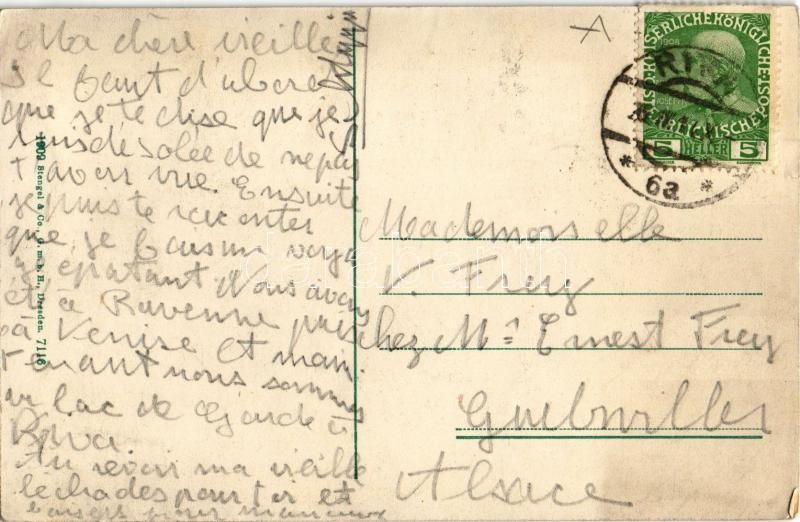 Ma chère vieille
Il faut d'abord
que je te dise que je
suis desolée de ne pas
t'avoir vue Ensuite
je puis te raconter
que je fais un voya
épatant Nous avons
été à Ravenne puis
à Venise et main
tenant nous sommes
au lac de Garde à
Riva.
Au revoir ma vieille
pour toi et
baisers pour
1909 Stengel & Co., G. m. b. H., Dresden. 7116
KAISERLICHE KÖNIGLICHE ÖSTERREICHISCHE POST
1908
5 HELLER 5
RIVA
* 6a *
Mademoiselle
V. Frey
chez Mr Ernest Frey
Guebwiller
Alsace
darabanth